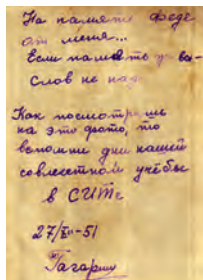 На память Феде
от меня...
Если память у вас-
Слов не надо
Как посмотришь
на это фото, то
вспомни дни нашей
совместной учёбы
в СИТе
27/XII-51
Гагарин